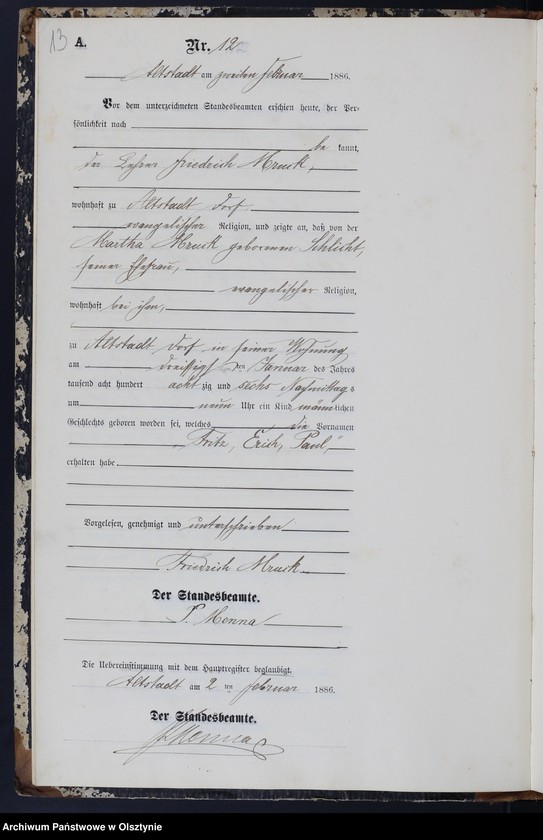 13
A.
Nr. 12
Altstadt am zweiten Februar 1886.
Vor dem unterzeichneten Standesbeamten erschien heute, der Per-
sönlichkeit nach
be kannt,
der Lehrer Friedrich Mruck,
wohnhaft zu Altstadt Dorf
evangelischer Religion, und zeigte an, daß von der
Martha Mruck geborenen Schlicht,
seiner Ehefrau,
evangelischer Religion,
wohnhaft bei ihm,
zu Altstadt Dorf in seiner Wohnung
am dreißigsten Januar des Jahres
tausend acht hundert acht zig und sechs Nachmittags
um neun Uhr ein Kind männlichen
Geschlechts geboren worden sei, welches die Vornamen
„Fritz, Erich, Paul,“
erhalten habe.
Vorgelesen, genehmigt und unterschrieben
Friedrich Mruck
Der Standesbeamte.
Menna
Die Uebereinstimmung mit dem Hauptregister beglaubigt.
Altstadt am 2 ten Februar 1886.
Der Standesbeamte.
Menna
Archiwum Państwowe w Olsztynie